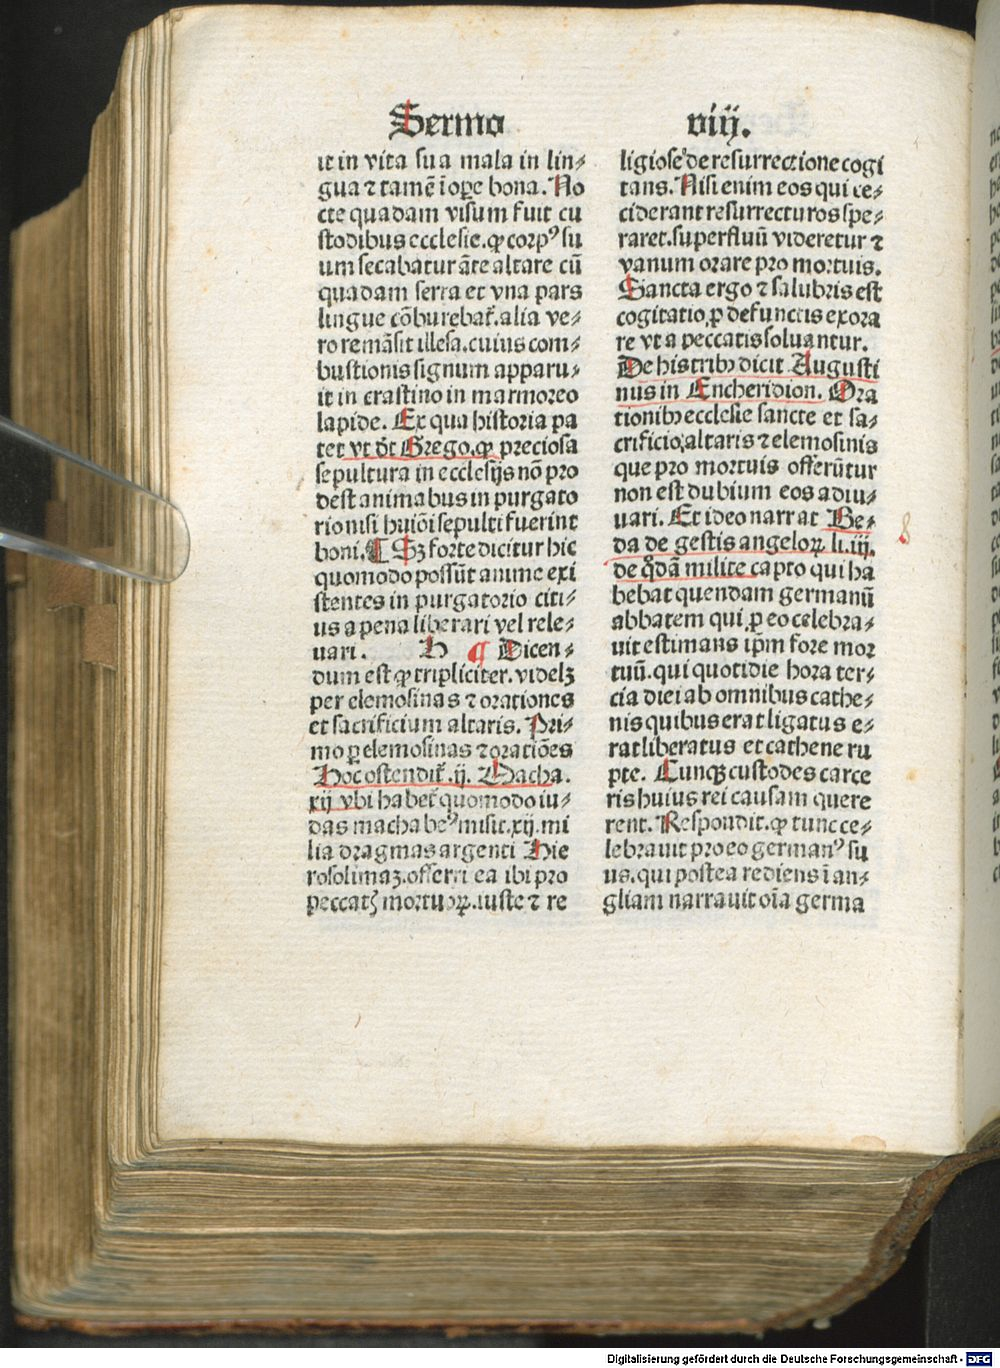 Sermo viij.
it in vita sua mala in lin⸗
gua ⁊ tamē ī oꝑe bona. No
cte quadam visum fuit cu
stodibus ecclesie. ꝙ corpꝰ su
um secabatur āte altare cū
quadam serra et vna pars
lingue cōburebat̄. alia ve⸗
ro remāsit illesa. cuius com⸗
bustionis signum apparu⸗
it in crastino in marmoreo
lapide. Ex qua historia pa
tet vt dt̄ Grego. ꝙ preciosa
sepultura in ecclesijs nō pro
dest animabus in purgato
rio nisi huiōi sepulti fuerint
boni. ¶ Sꝫ forte dicitur hic
quomodo possūt anime exi
stentes in purgatorio citi⸗
us a pena liberari vel rele⸗
uari. H ¶ Dicen⸗
dum est ꝙ tripliciter. videlꝫ
per elemosinas ⁊ orationes
et sacrificium altaris. Pri⸗
mo ꝑ elemosinas ⁊ oratiōes
Hoc ostendit̄. ij. Macha.
xij vbi habet̄ quomodo iu⸗
das machabeꝰ misit. xij. mi
lia dragmas argenti Hie
rosolimaꝫ. offerri ea ibi pro
peccatꝭ mortuoꝝ. iuste ⁊ re
ligiose de resurrectione cogi
tans. Nisi enim eos qui ce⸗
ciderant resurrecturos spe⸗
raret. superfluū videretur ⁊
vanum orare pro mortuis.
Sancta ergo ⁊ salubris est
cogitatio, ꝓ defunctis exora
re vt a peccatis soluantur.
De his tribꝫ dicit Augusti
nus in Encheridion. Ora
tionibꝫ ecclesie sancte et sa⸗
crificio, altaris ⁊ elemosinis
que pro mortuis offerūtur
non est dubium eos adiu⸗
uari. Et ideo narrat Be⸗
da de gestis angeloꝝ li. iij.
de qͦdā milite capto qui ha
bebat quendam germanū
abbatem qui, ꝓ eo celebra⸗
uit estimans ip̄m fore mor
tuū. qui quotidie hora ter⸗
cia diei ab omnibus cathe⸗
nis quibus erat ligatus e⸗
rat liberatus et cathene ru
pte. Cunqꝫ custodes carce
ris huius rei causam quere
rent. Respondit. ꝙ tunc ce⸗
lebrauit pro eo germanꝰ su
us. qui postea rediens ī an⸗
gliam narrauit oīa germa
8
Digitalisierung gefördert durch die Deutsche Forschungsgemeinschaft - DFG